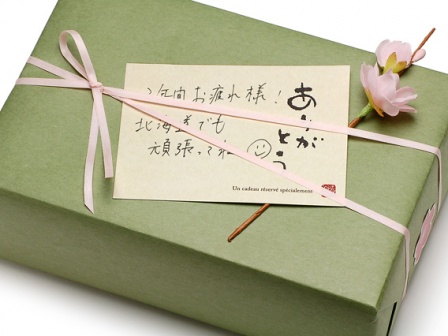 2年間お疲れ様!
北海道でも
頑張ってね
ありがとう
Un cadeau réservé spécialement